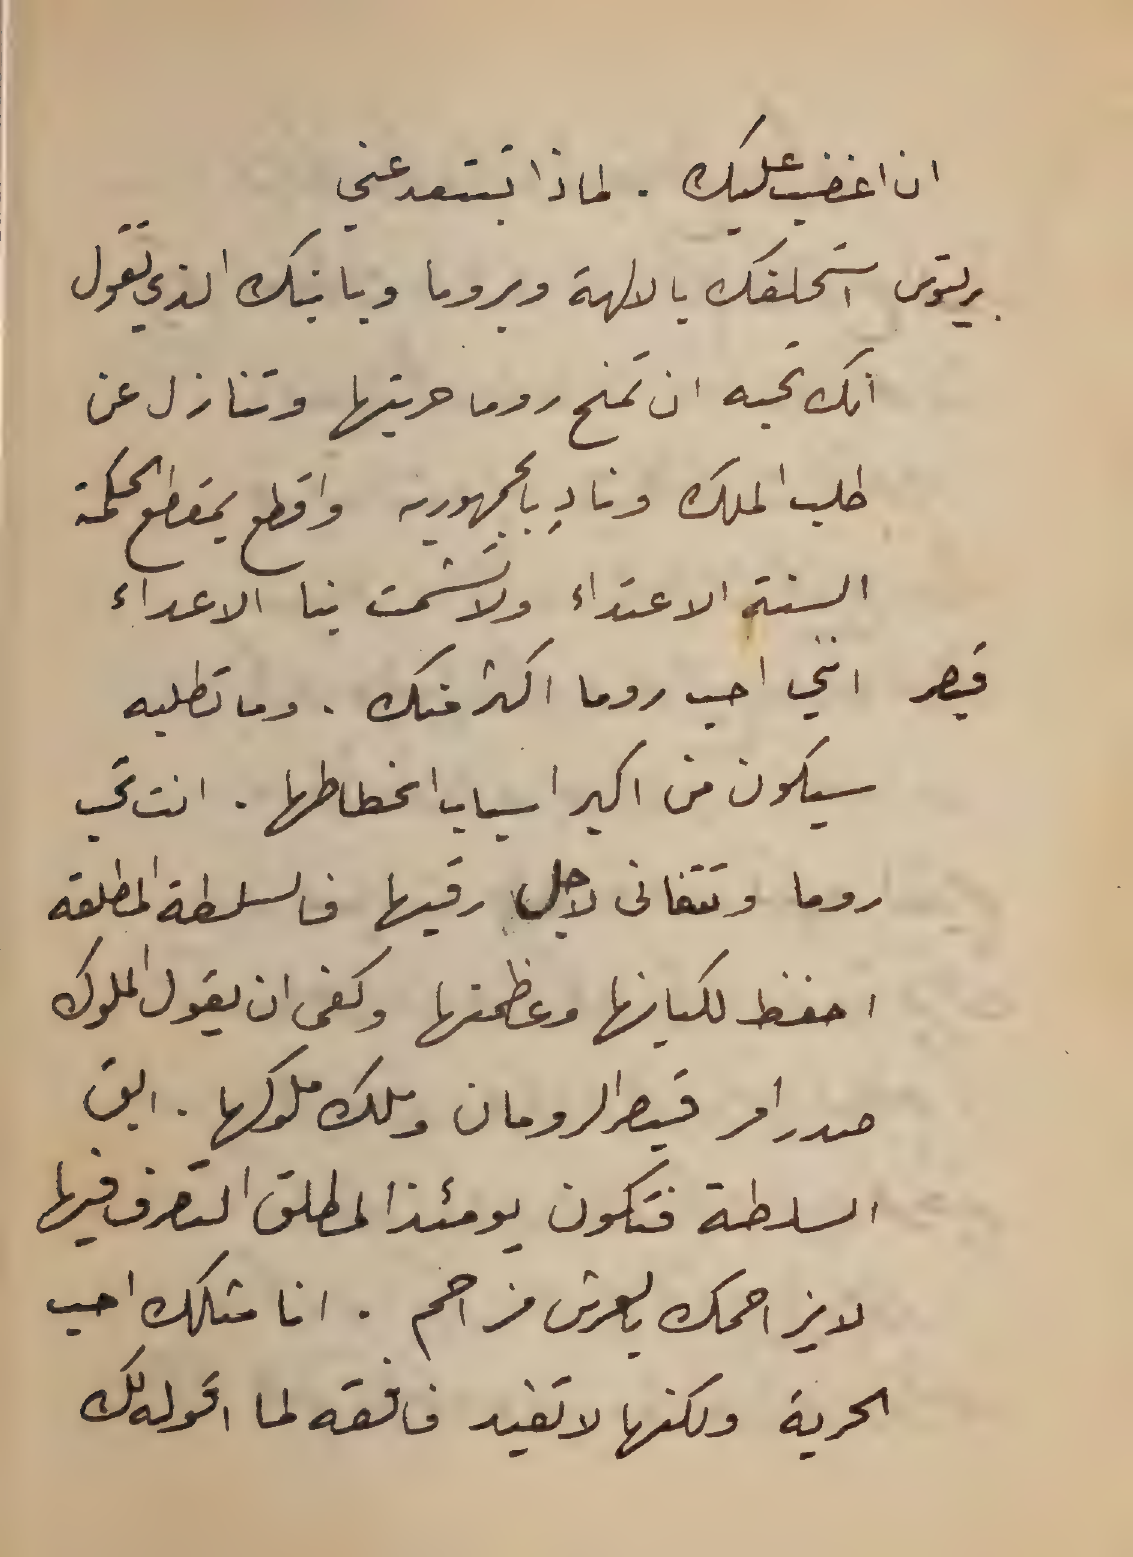 ان اغضب عليك . لماذا تبتعد عني
بريتوس استحلفك بالالهة وبروما وبابنك الذي تقول
انك تحبه ان تمنح روما حريتها وتنازل عن
طلب الملك ونادِ بالجمهوريه واقطع بمقطع الحكمة
السنة الاعتداء ولا تشمت بنا الاعداء
قيصر انني احب روما اكثر منك . وما تطلبه
سيكون من اكبر اسباب انحطاطها . انت تحب
روما وتتفانى لاجل رقيها فالسلطة المطلقه
احفظ لكيانها وعظمتها وكفى ان يقول الملوك
صدر امر قيصر الرومان وملك ملوكها . ابق
السلطة فتكون يومئذ المطلق التصرف فيها
لا يزاحمك بالعرش مزاحم . انا مثلك احب
الحرية ولكنها لا تفيد فافقه لما اقوله لك